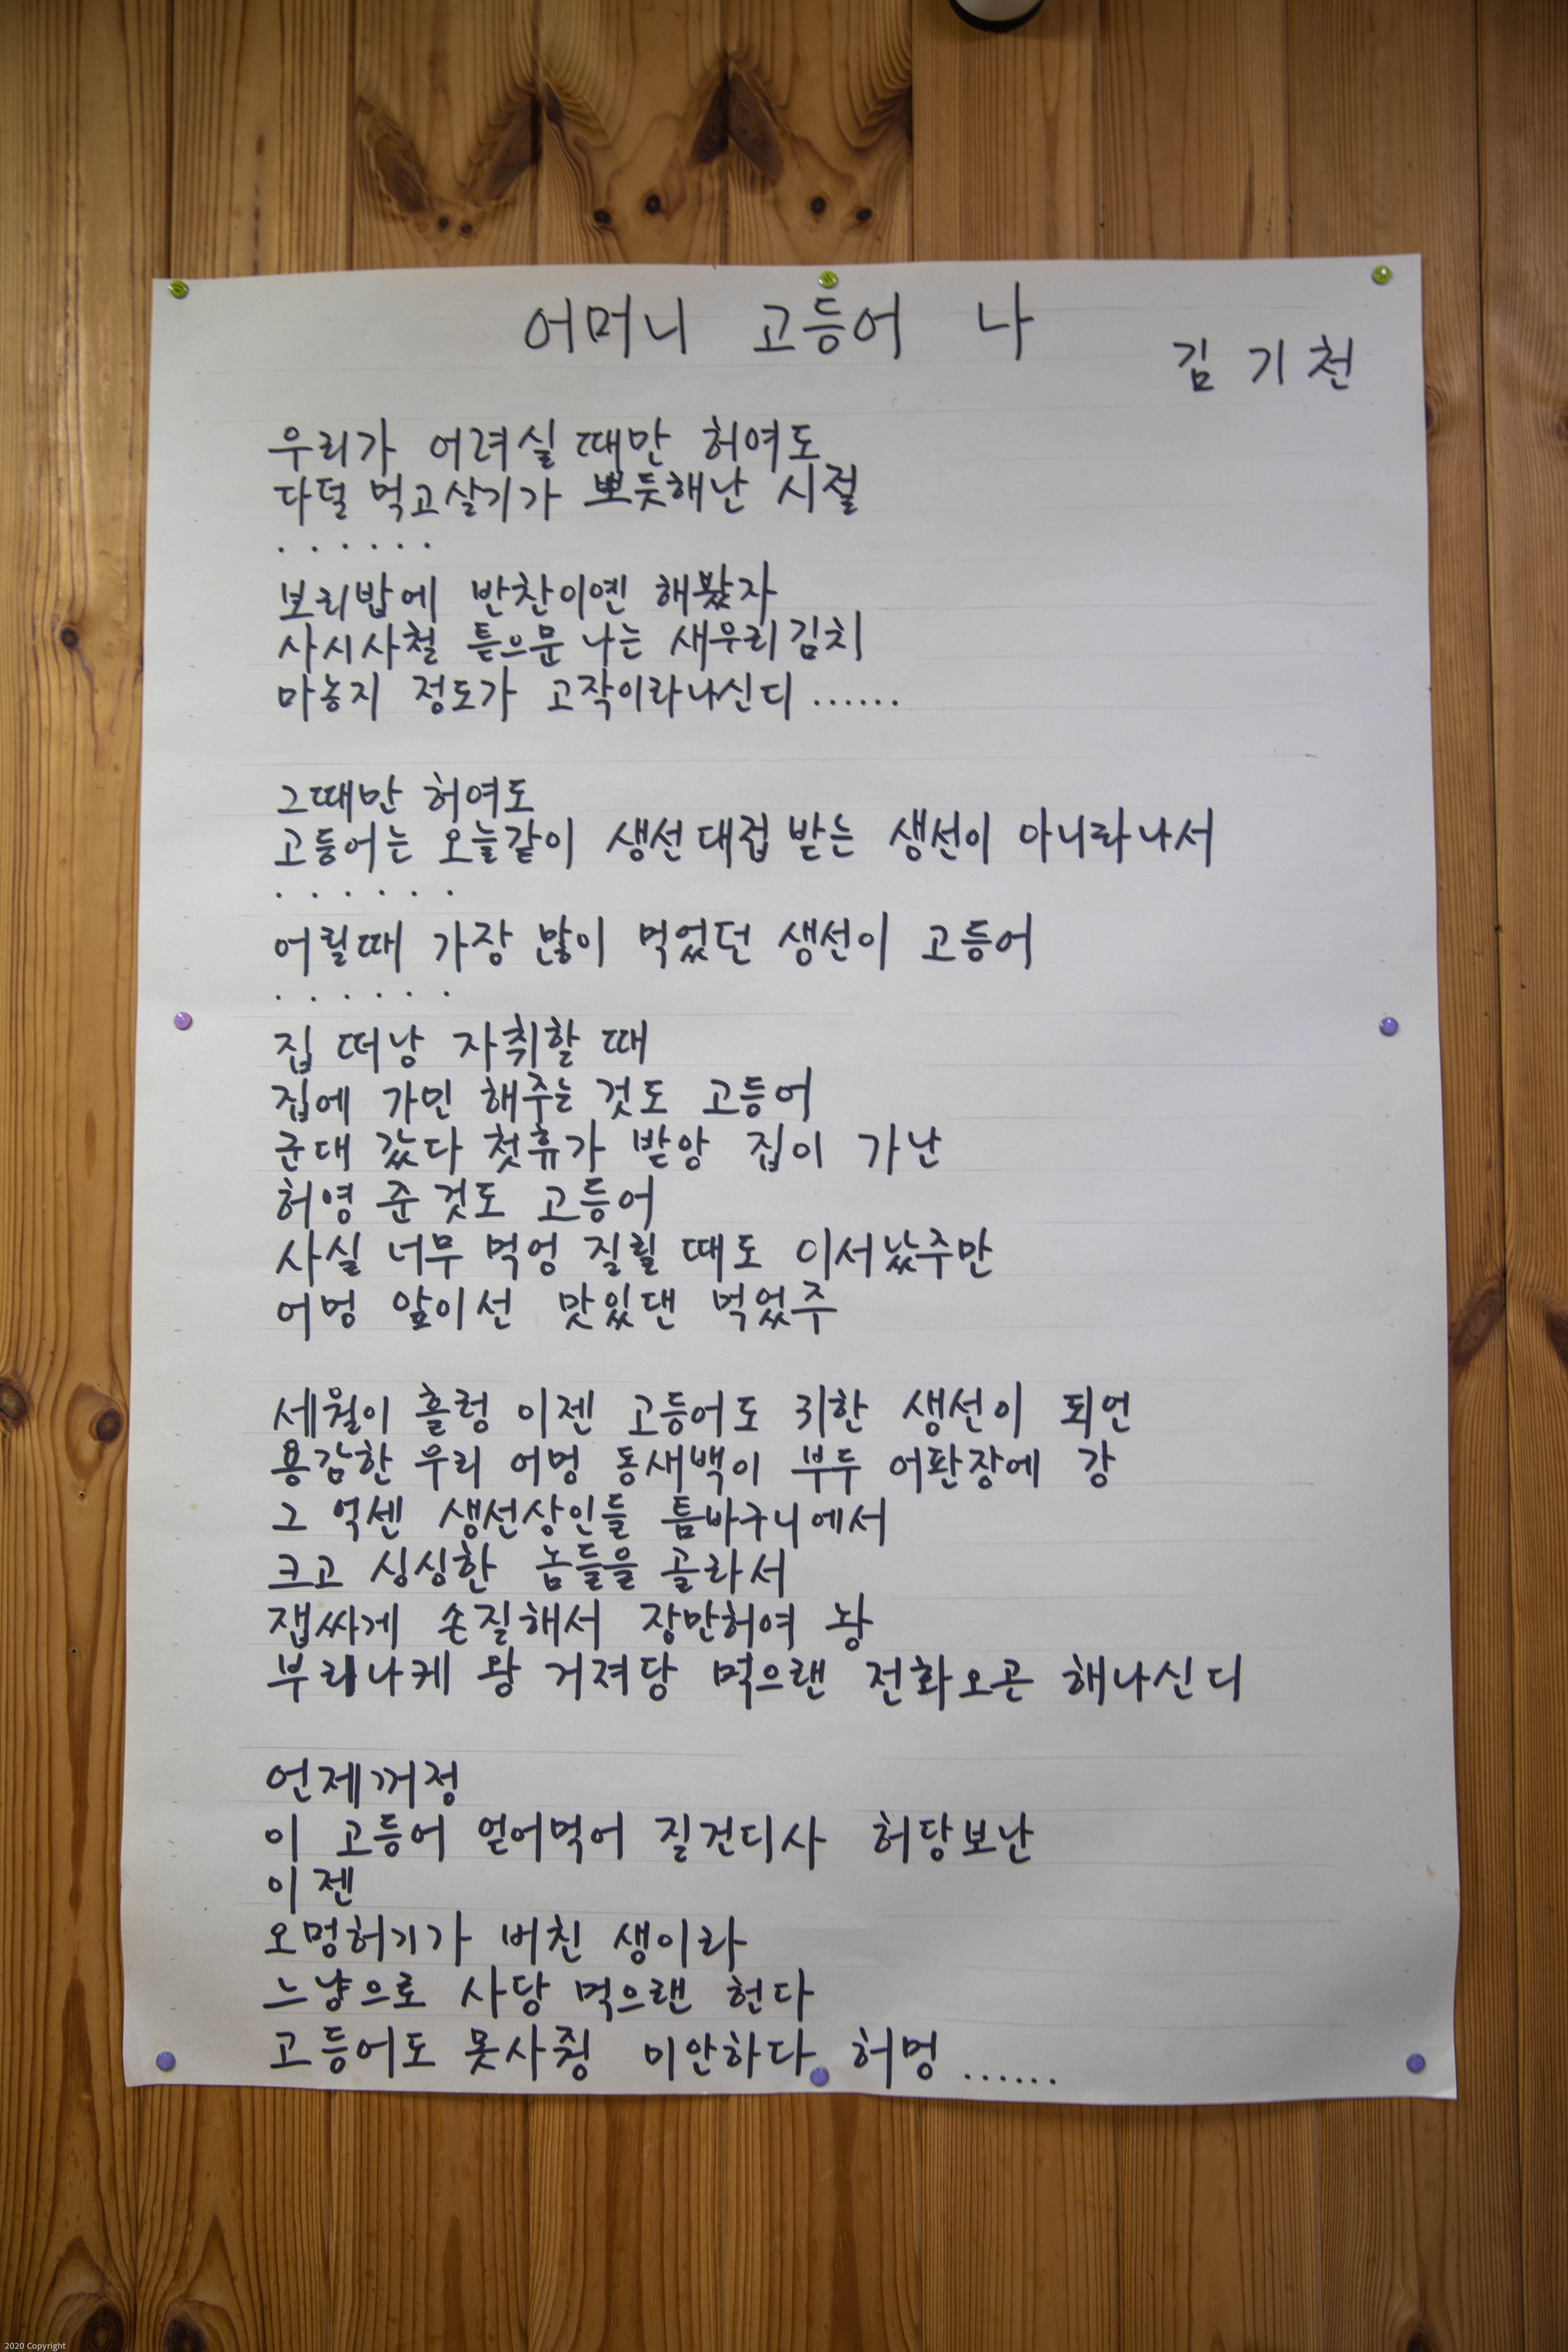 어머니 고등어 나
김기천
우리가 어려실 때만 허여도
다덜 먹고살기가 뽀듯해난 시절
. . . . . .
보리밥에 반찬이옌 해봤자
사시사철 틑으문 나는 새우리김치
마농지 정도가 고작이라나신디 ......
그때만 허여도
고등어는 오늘같이 생선대접 받는 생선이 아니라나서
. . . . . .
어릴때 가장 많이 먹었던 생선이 고등어
. . . . . .
집 떠낭 자취할 때
집에 가민 해주는 것도 고등어
군대 갔다 첫휴가 받앙 집이 가난
허영 준 것도 고등어
사실 너무 먹엉 질릴 때도 이서났주만
어멍 앞이선 맛있댄 먹었주
세월이 흘렁 이젠 고등어도 귀한 생선이 되언
용감한 우리 어멍 동새백이 부두 어판장에 강
그 억센 생선상인들 틈바구니에서
크고 싱싱한 놈들을 골라서
잽싸게 손질해서 장만허여 놩
부리나케 왕 거져당 먹으랜 전화오곤 해나신디
언제꺼정
이 고등어 얻어먹어 질건디사 허당보난
이젠
오멍허기가 버친 생이라
느냥으로 사당 먹으랜 헌다
고등어도 못사줭 미안하다 허멍 ......
2020 Copyright